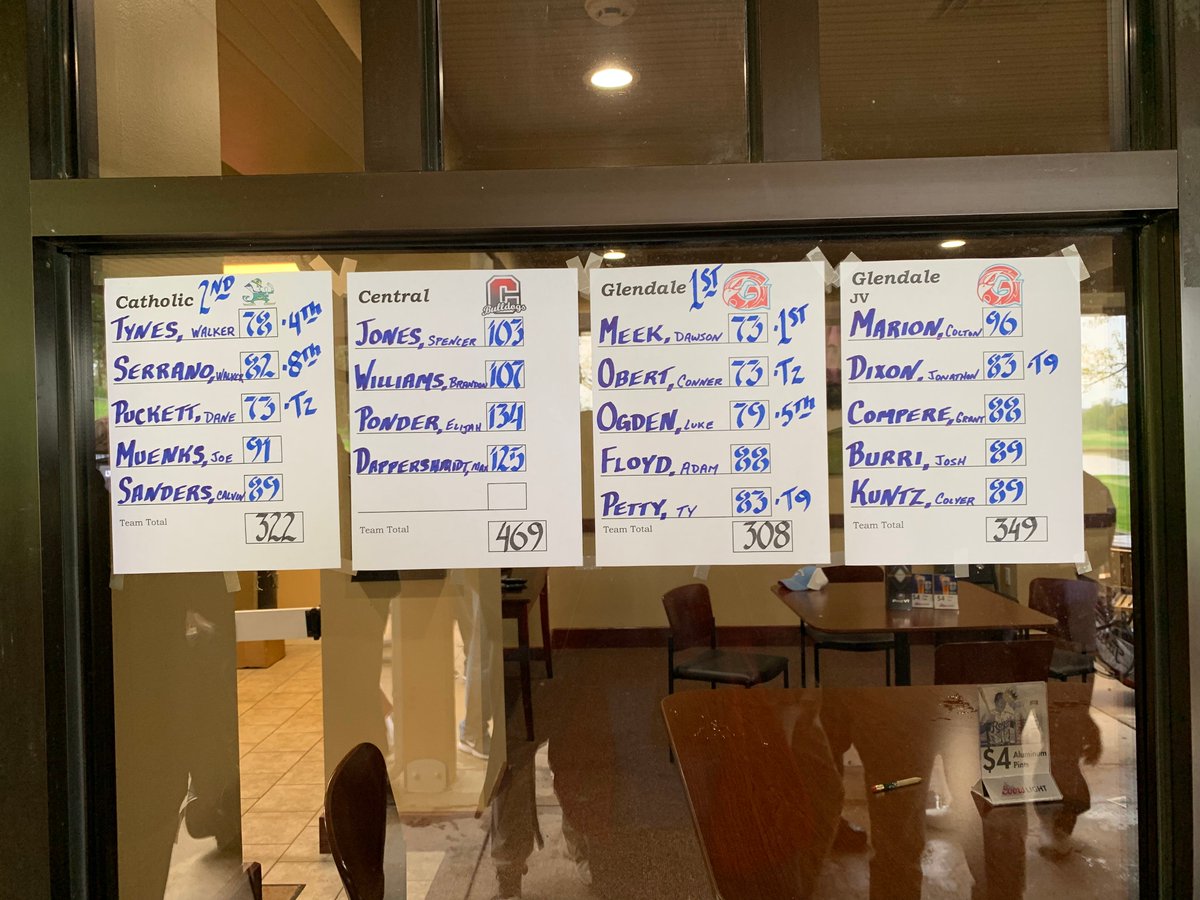 Catholic 2ND
TYNES, WALKER 78 •4th
SERRANO, WALKER 82 •8th
PUCKETT, DANE 73 •T2
MUENKS, JOE 91
SANDERS, CALVIN 89
Team Total 322
Central C Bulldogs
JONES, SPENCER 103
WILLIAMS, BRANDON 107
PONDER, ELIJAH 134
DAPPERSHMIDT, MAX 125
Team Total 469
Glendale 1ST G
MEEK, DAWSON 73 •1st
OBERT, CONNER 73 •T2
OGDEN, LUKE 79 •5th
FLOYD, ADAM 88
PETTY, TY 83 •T9
Team Total 308
Glendale G
JV
MARION, COLTON 96
DIXON, JONATHON 83 •T9
COMPERE, GRANT 88
BURRI, JOSH 89
KUNTZ, COLYER 89
Team Total 349
$4 $4
$4 Aluminum
Pints
Coors LIGHT